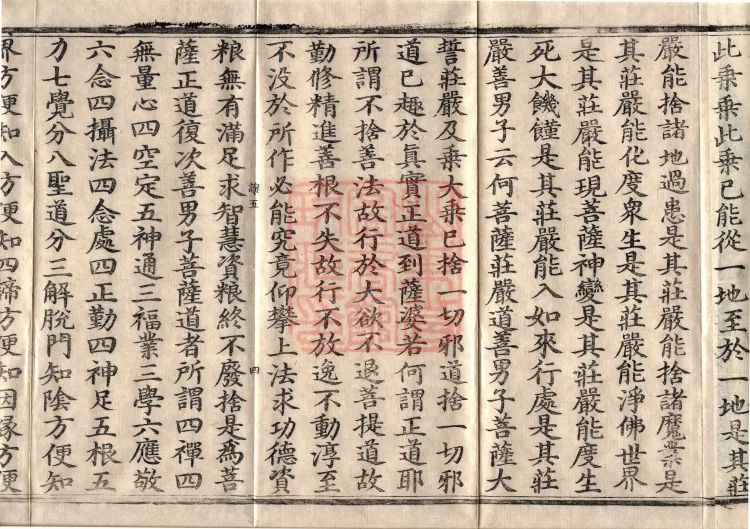 此乘乘此乘已能從一地至於一地是其莊
嚴能捨諸地過患是其莊嚴能捨諸魔業是
其莊嚴能化度衆生是其莊嚴能淨佛世界
是其莊嚴能現菩薩神變是其莊嚴能度生
死大饑饉是其莊嚴能入如來行處是其莊
嚴善男子云何菩薩莊嚴道善男子菩薩大
誓莊嚴及乘大乘已捨一切邪道捨一切邪
道已趣於真實正道到薩婆若何謂正道耶
所謂不捨善法故行於大欲不退菩提道故
勤修精進善根不失故行不放逸不動淳至
不没於所作必能究竟仰攀上法求功德資
糧無有滿足求智慧資糧終不廢捨是爲菩
薩正道復次善男子菩薩道者所謂四禪四
無量心四空定五神通三福業三學六應敬
六念四攝法四念處四正勤四神足五根五
力七覺分八聖道分三解脫門知陰方便知
界方便知入方便知四諦方便知因緣方便
四